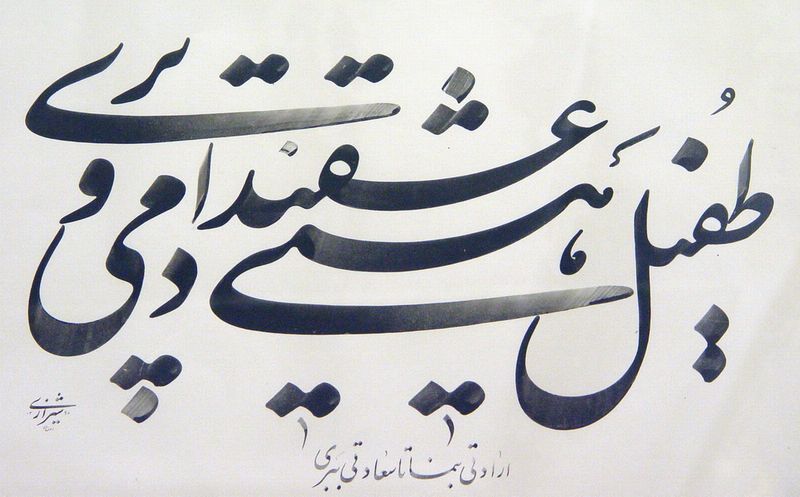 طُفیل هستی عشقند آدمی و پری
ارادتی بنما تا سعادتی ببری
شیرازی